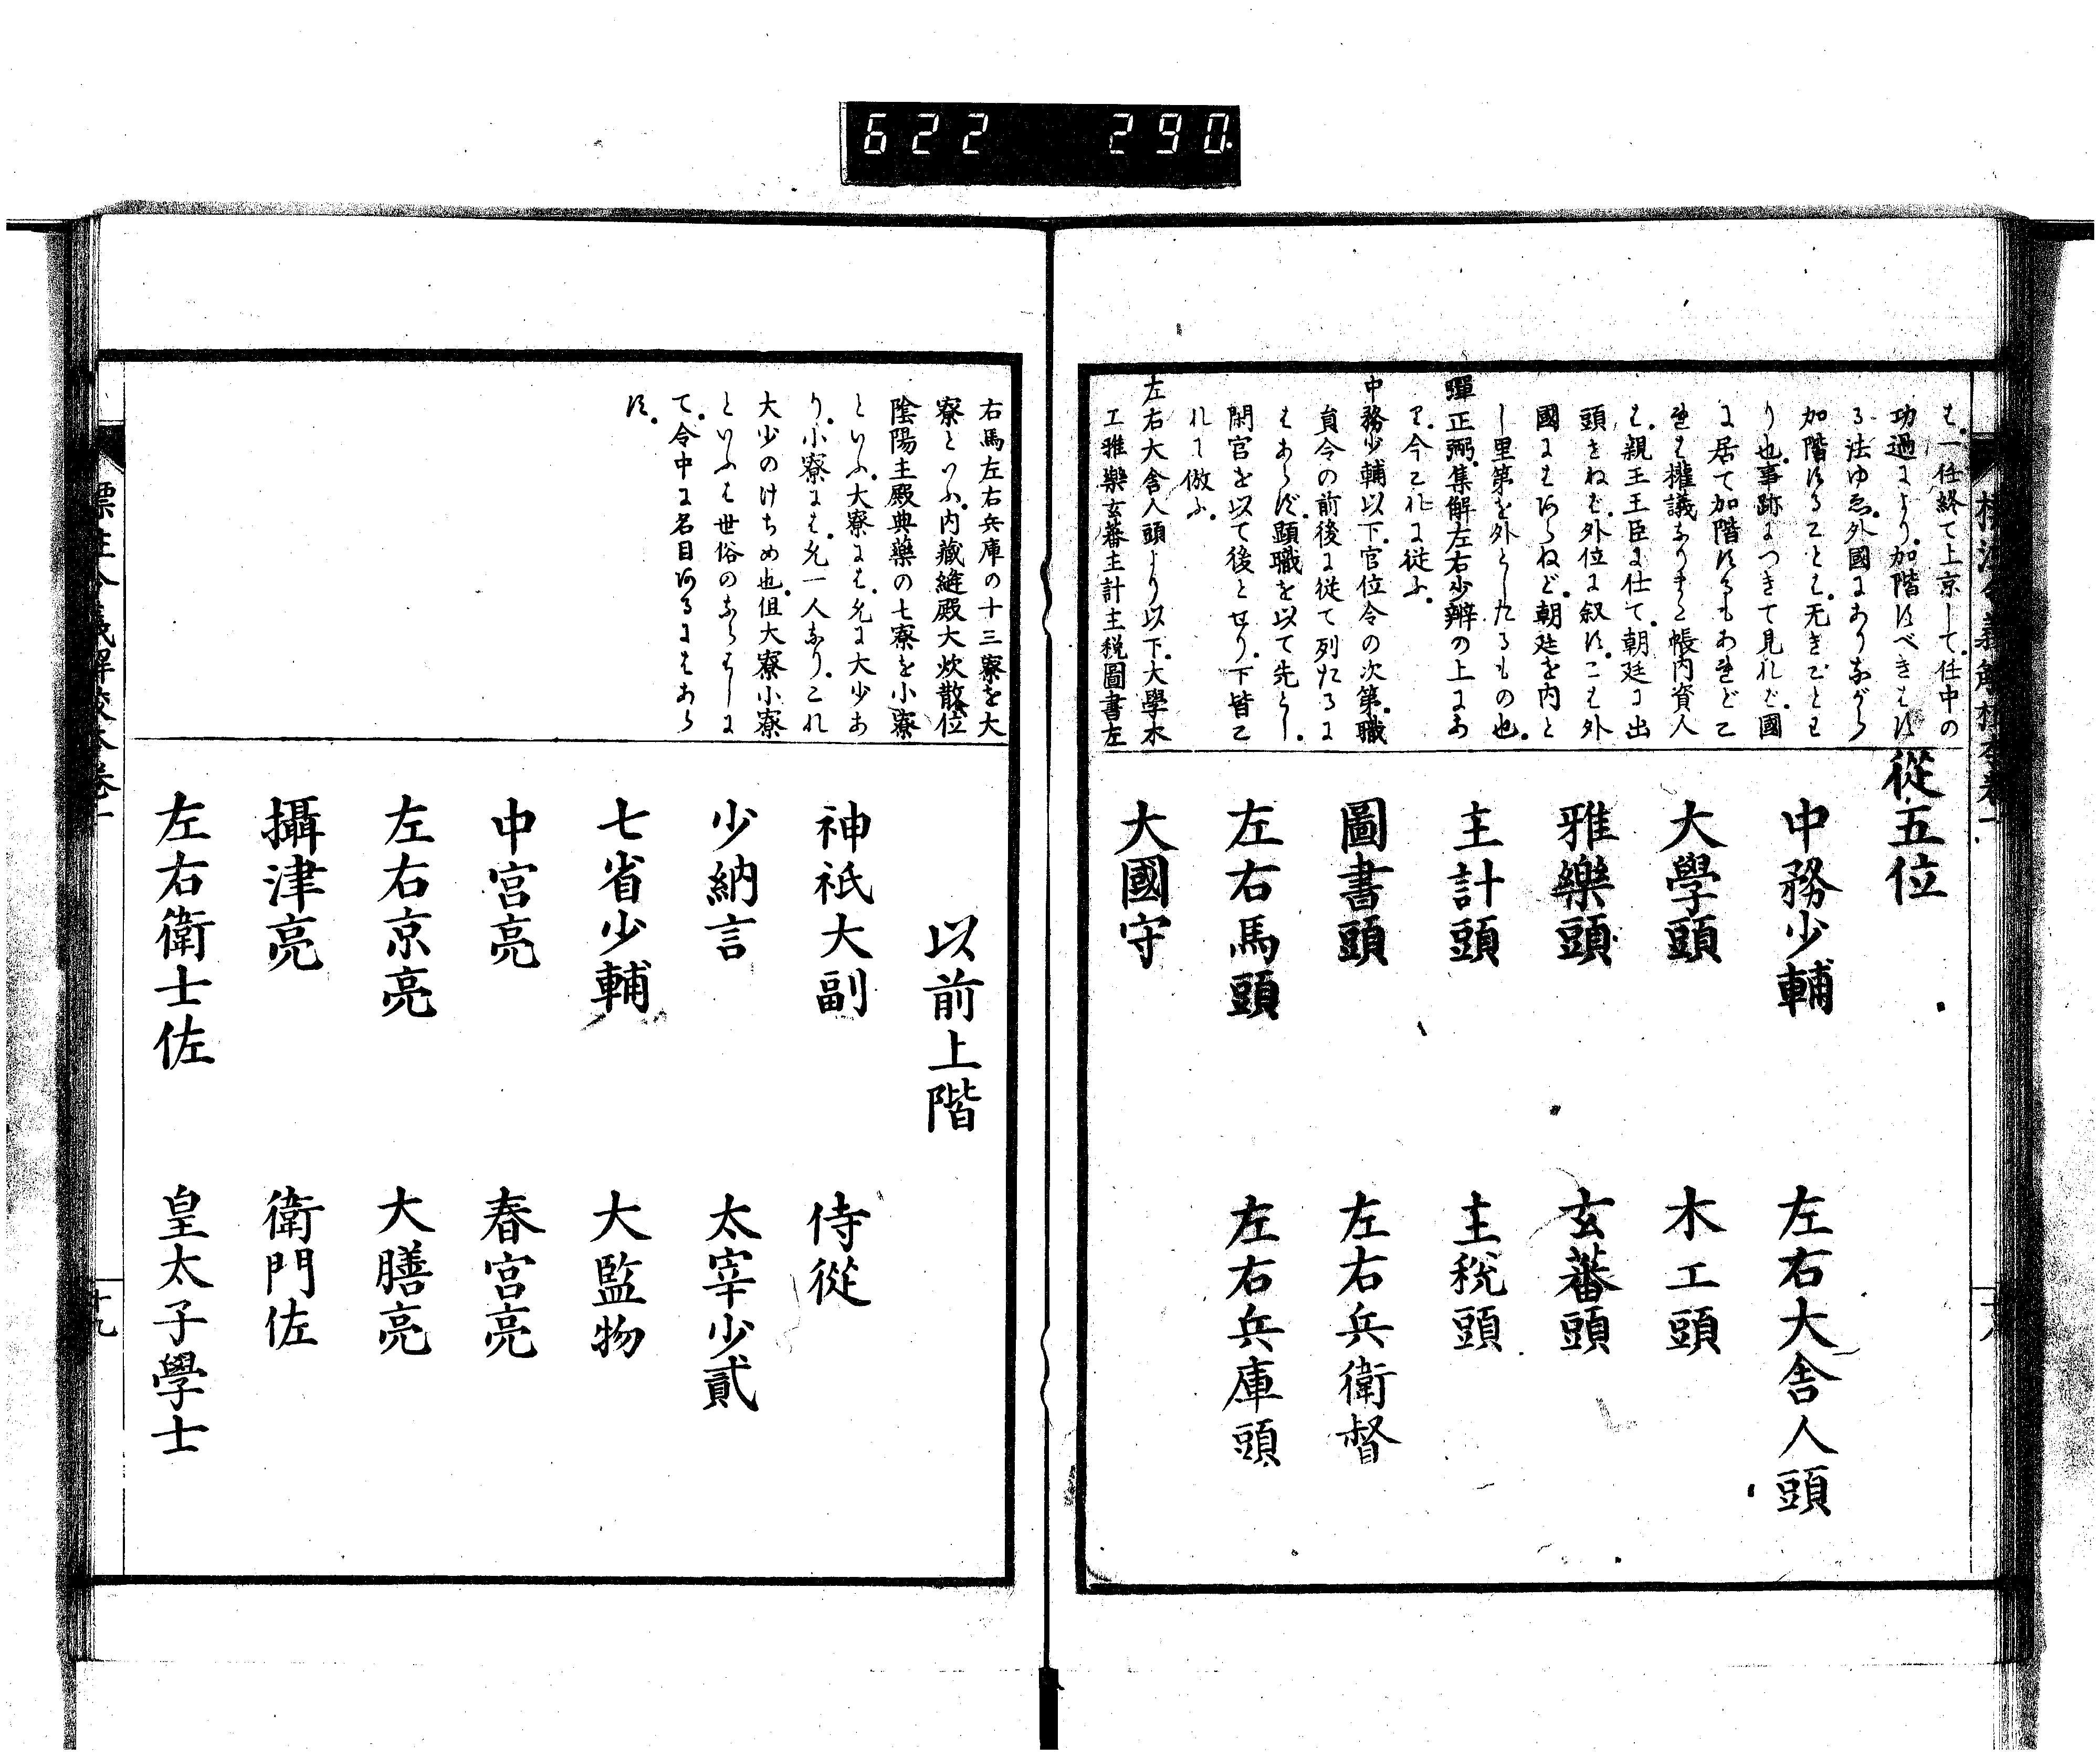 622 290
は。一任終て上京して。任中の
功過により。加階すべきはす
る法ゆゑ。外國にありながら
加階することは。无きごとも
り也。事跡につきて見れば。國
に居て加階するもあれどこ
れは權議なりまた帳内資人
は。親王王臣に仕て。朝廷に出
頭せねば。外位に叙す。こは外
國にはあらねど。朝廷を内と
し里第を外としたるもの也。
彈正弼。集解左右少辨の上にあ
り。今これに從ふ。
中務少輔以下。官位令の次第。職
員令の前後に從て列たるに
はあらず。顯職を以て先とし。
閑官を以て後とせり。下皆こ
れに倣ふ。
左右大舍人頭より以下。大學木
工雅樂玄蕃主計主税圖書左
從五位
中務少輔 左右大舍人頭
大學頭 木工頭
雅樂頭 玄蕃頭
主計頭 主税頭
圖書頭 左右兵衛督
左右馬頭 左右兵庫頭
大國守
右馬左右兵庫の十三寮を大
寮といふ。内藏縫殿大炊散位
陰陽主殿典藥の七寮を小寮
といふ。大寮には。允に大少あ
り。小寮には。允一人なり。これ
大少のけちめ也。但大寮小寮
といふは世俗のならはしに
て。令中に名目あるにはあら
ず。
以前上階
神祇大副 侍從
少納言 太宰少貳
七省少輔 大監物
中宮亮 春宮亮
左右京亮 大膳亮
攝津亮 衛門佐
左右衛士佐 皇太子學士
標注令義解校本卷一
十九